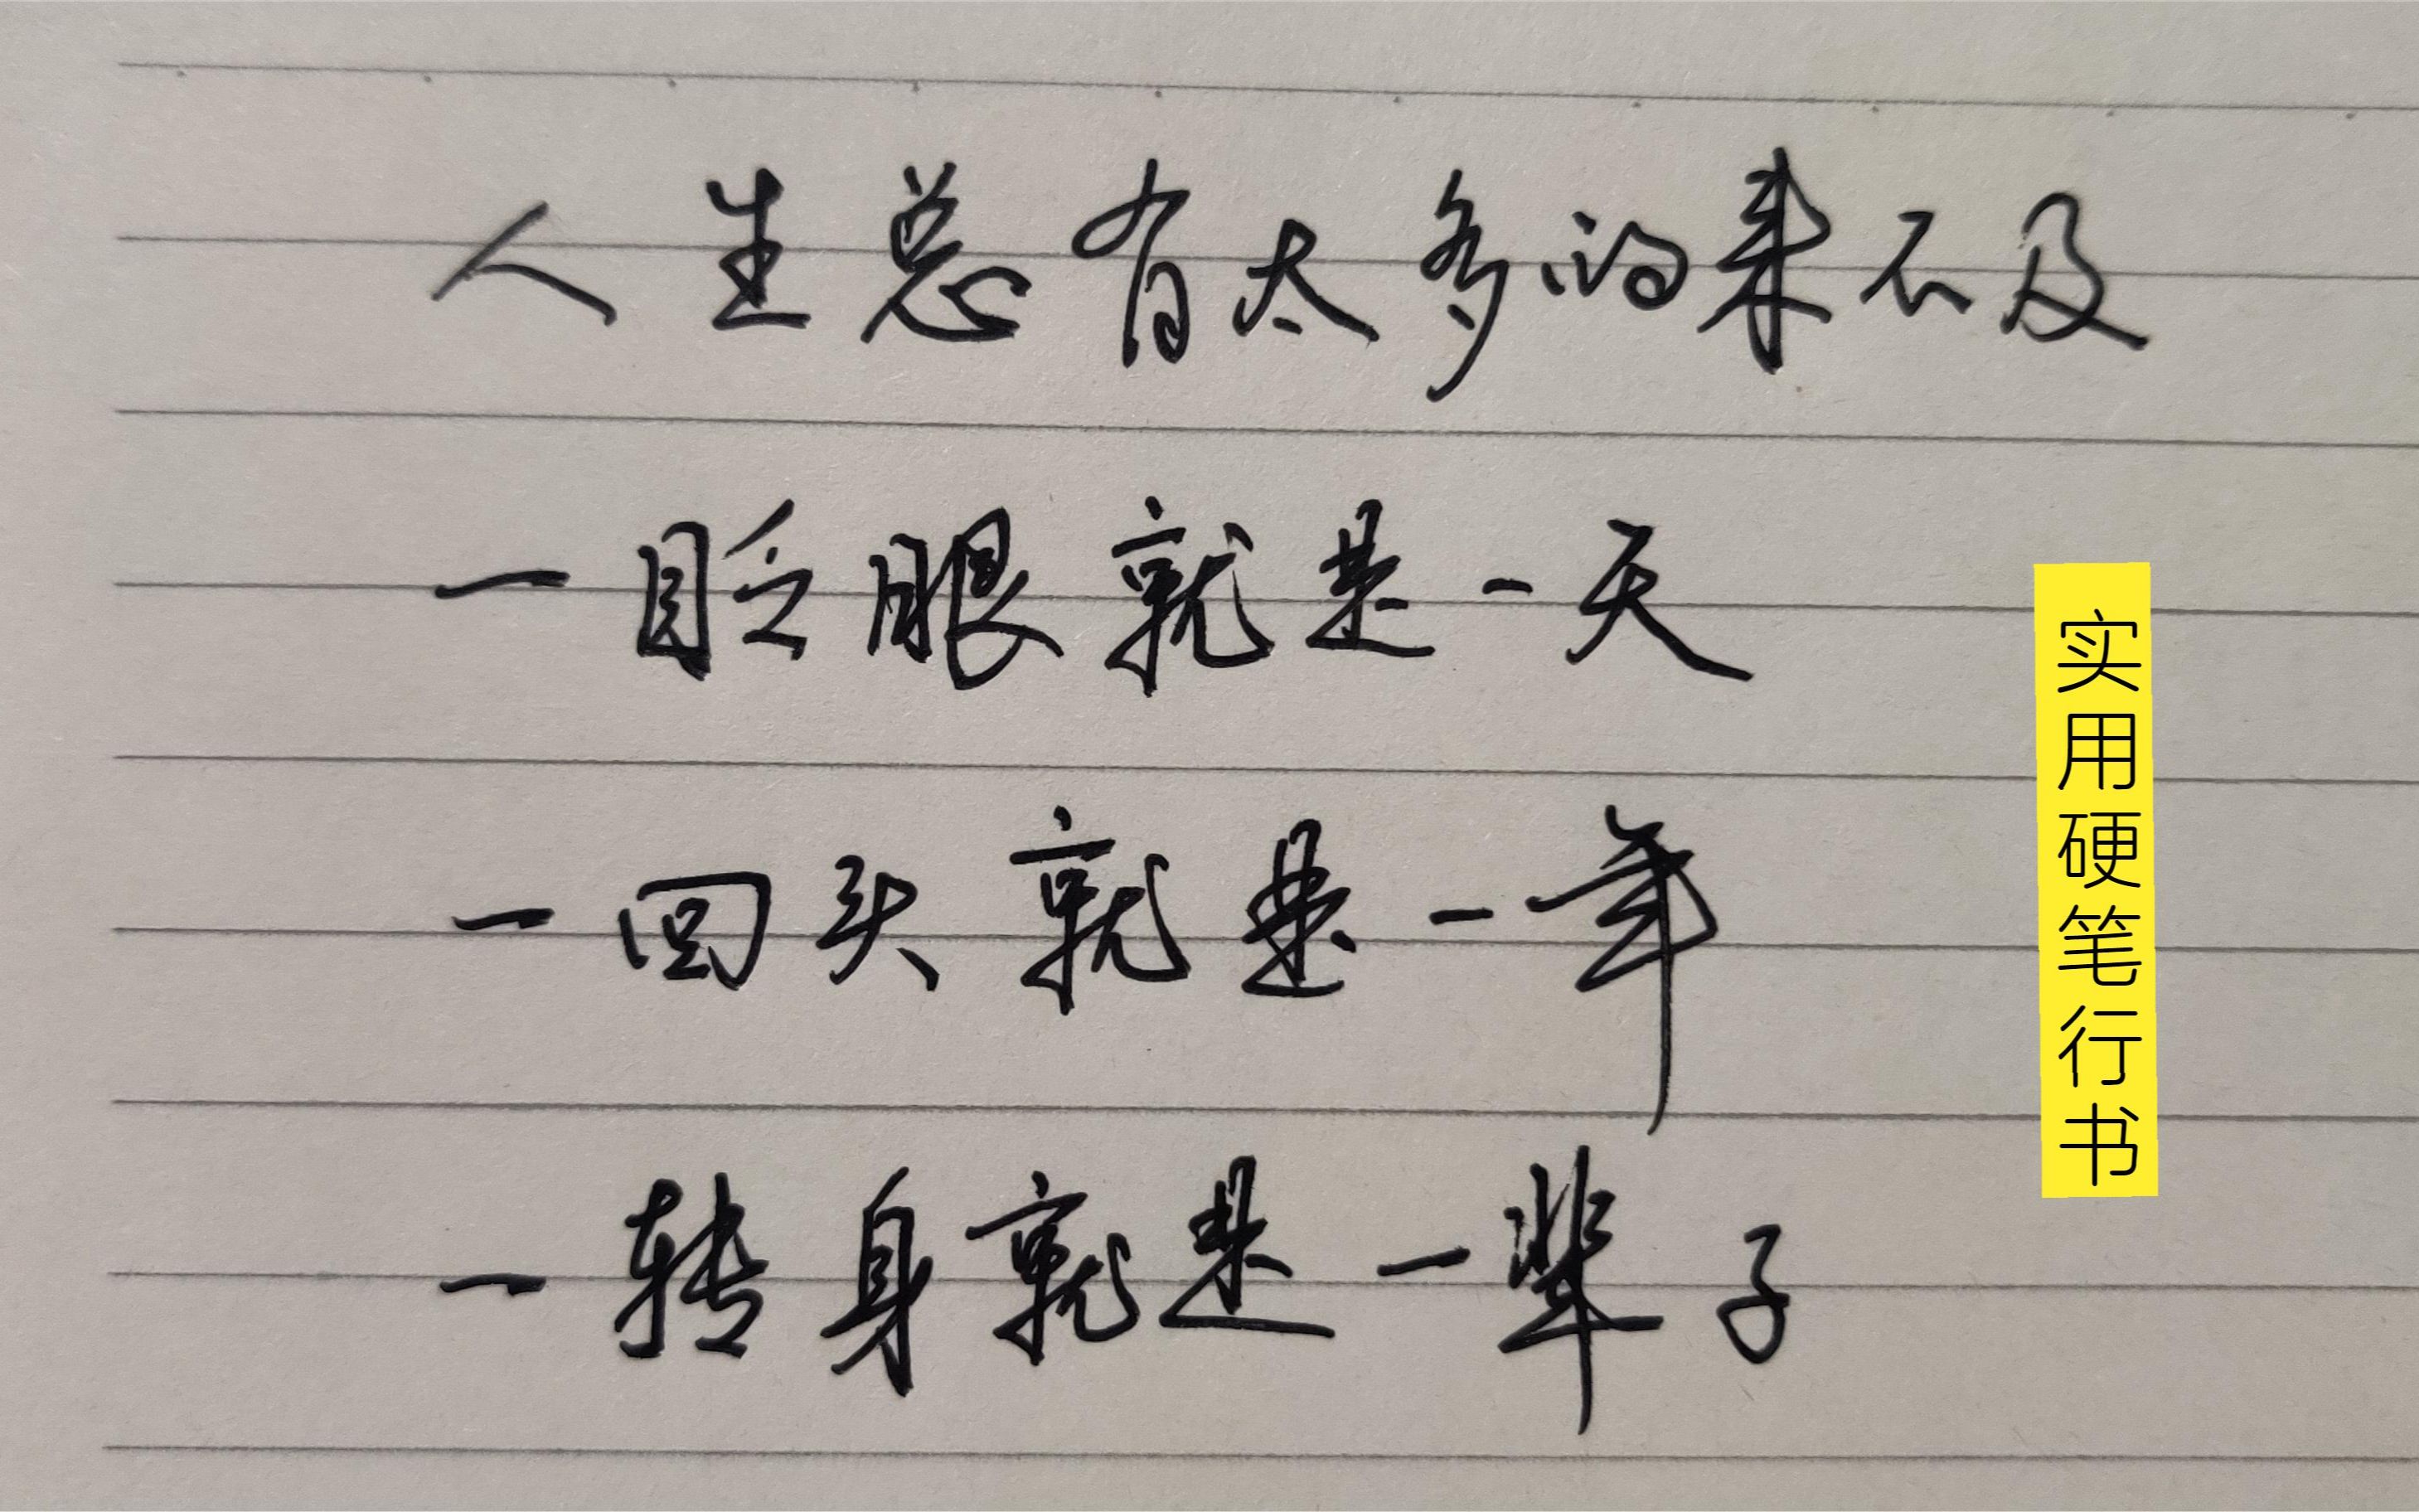 人生总有太多的来不及
一眨眼就是一天
一回头就是一年
一转身就是一辈子
实用硬笔行书